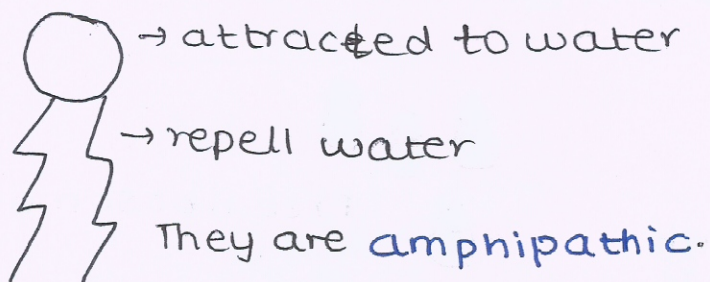 → attracted to water
→ repell water
They are amphipathic.